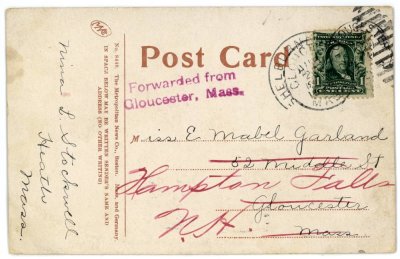 Post Card
Forwarded from
Gloucester, Mass.
Miss E. Mabel Garland
52 Middle St
Hampton Falls
Gloucester
N.H.
Mass
No. 8449. The Metropolitan News Co., Boston, Mass., and Germany
IN SPACE BELOW MAY BE WRITTEN SENDER'S NAME AND
ADDRESS (NO OTHER WRITING)
Mina L. Stockwell
Heath
Mass.